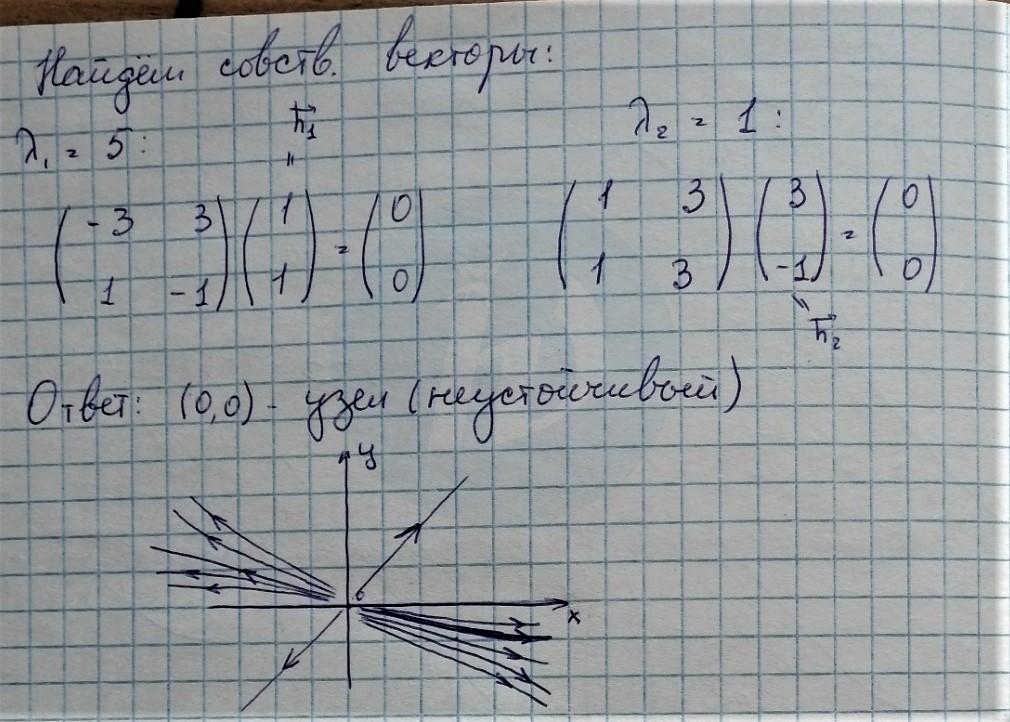 Найдём собств. векторы:
λ₁ = 5: λ₂ = 1:
h⃗₁
"
(-3 3; 1 -1)(1; 1) = (0; 0) (1 3; 1 3)(3; -1) = (0; 0)
"
h⃗₂
Ответ: (0,0) - узел (неустойчивый)
y
x